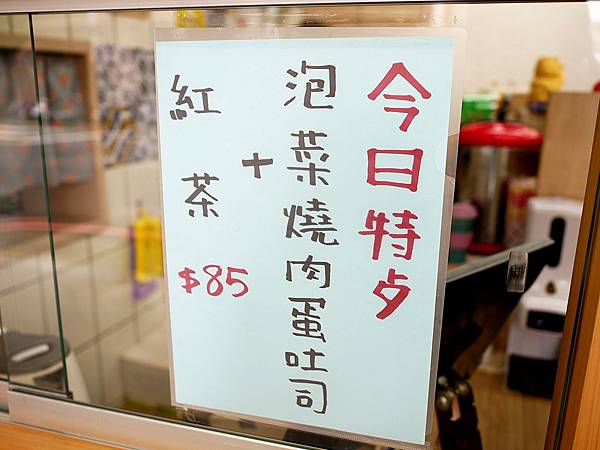 今日特夕
泡菜燒肉蛋吐司
+
紅茶
$85